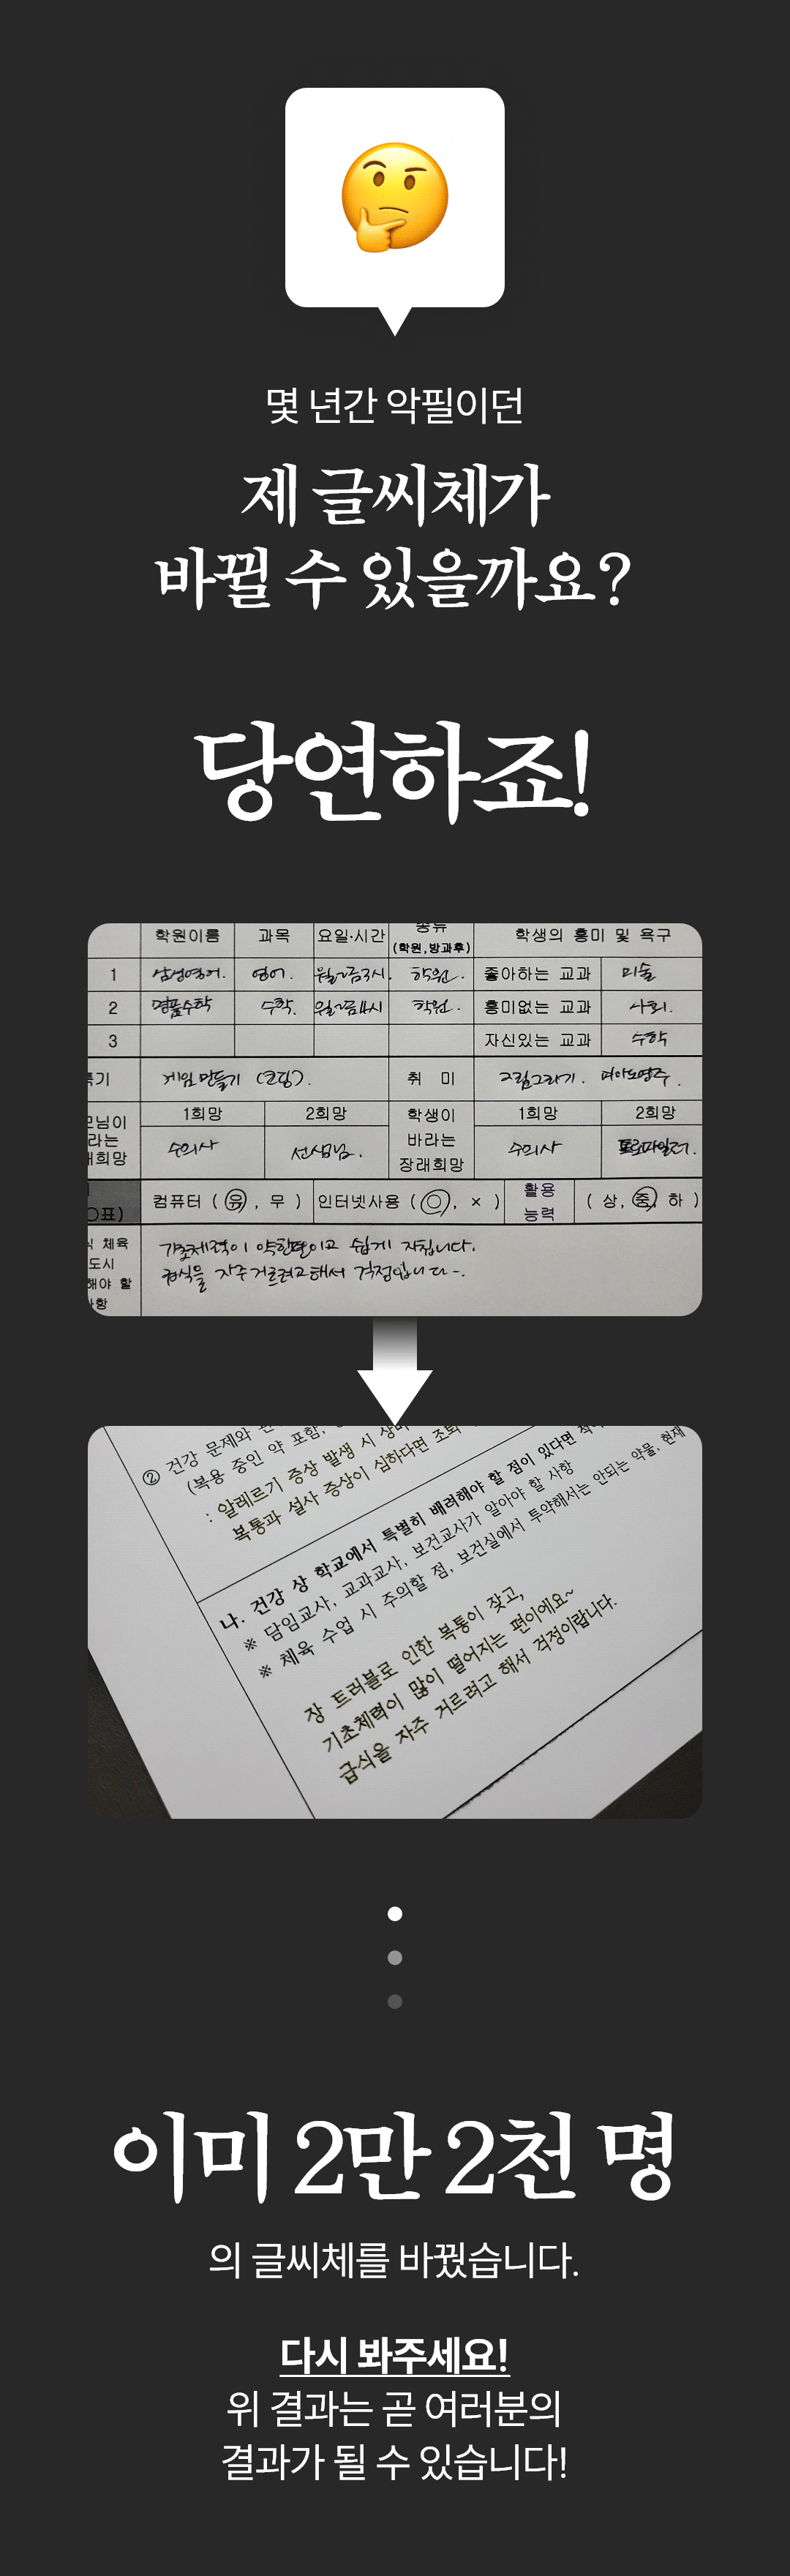 몇 년간 악필이던
제 글씨체가
바뀔 수 있을까요?
당연하죠!
학원이름 과목 요일·시간 종류 (학원,방과후) 학생의 흥미 및 욕구
1 삼성영어. 영어. 월~금3시. 학원. 좋아하는 교과 미술
2 명품수학 수학. 월~금4시 학원. 흥미없는 교과 사회.
3 자신있는 교과 수학
특기 게임 만들기 (코딩). 취 미 그림그리기. 피아노연주.
1희망 2희망 학생이 바라는 장래희망 1희망 2희망
수의사 선생님. 수의사 프로파일러.
컴퓨터 ( 유 , 무 ) 인터넷사용 ( ○, × ) 활용 능력 ( 상, 중, 하 )
체육
도시
해야 할
기초체력이 약한편이고 쉽게 지칩니다.
급식을 자주 거르려고해서 걱정입니다-.
② 건강 문제와
(복용 중인 약 포함,
: 알레르기 증상 발생 시
복통과 설사 증상이 심하다면 조퇴
나. 건강 상 학교에서 특별히 배려해야 할 점이 있다면
※ 담임교사, 교과교사, 보건교사가 알아야 할 사항
※ 체육 수업 시 주의할 점, 보건실에서 투약해서는 안되는 약물, 현재
장 트러블로 인한 복통이 잦고,
기초체력이 많이 떨어지는 편이에요~
급식을 자주 거르려고 해서 걱정이랍니다.
이미 2만 2천 명
의 글씨체를 바꿨습니다.
다시 봐주세요!
위 결과는 곧 여러분의
결과가 될 수 있습니다!